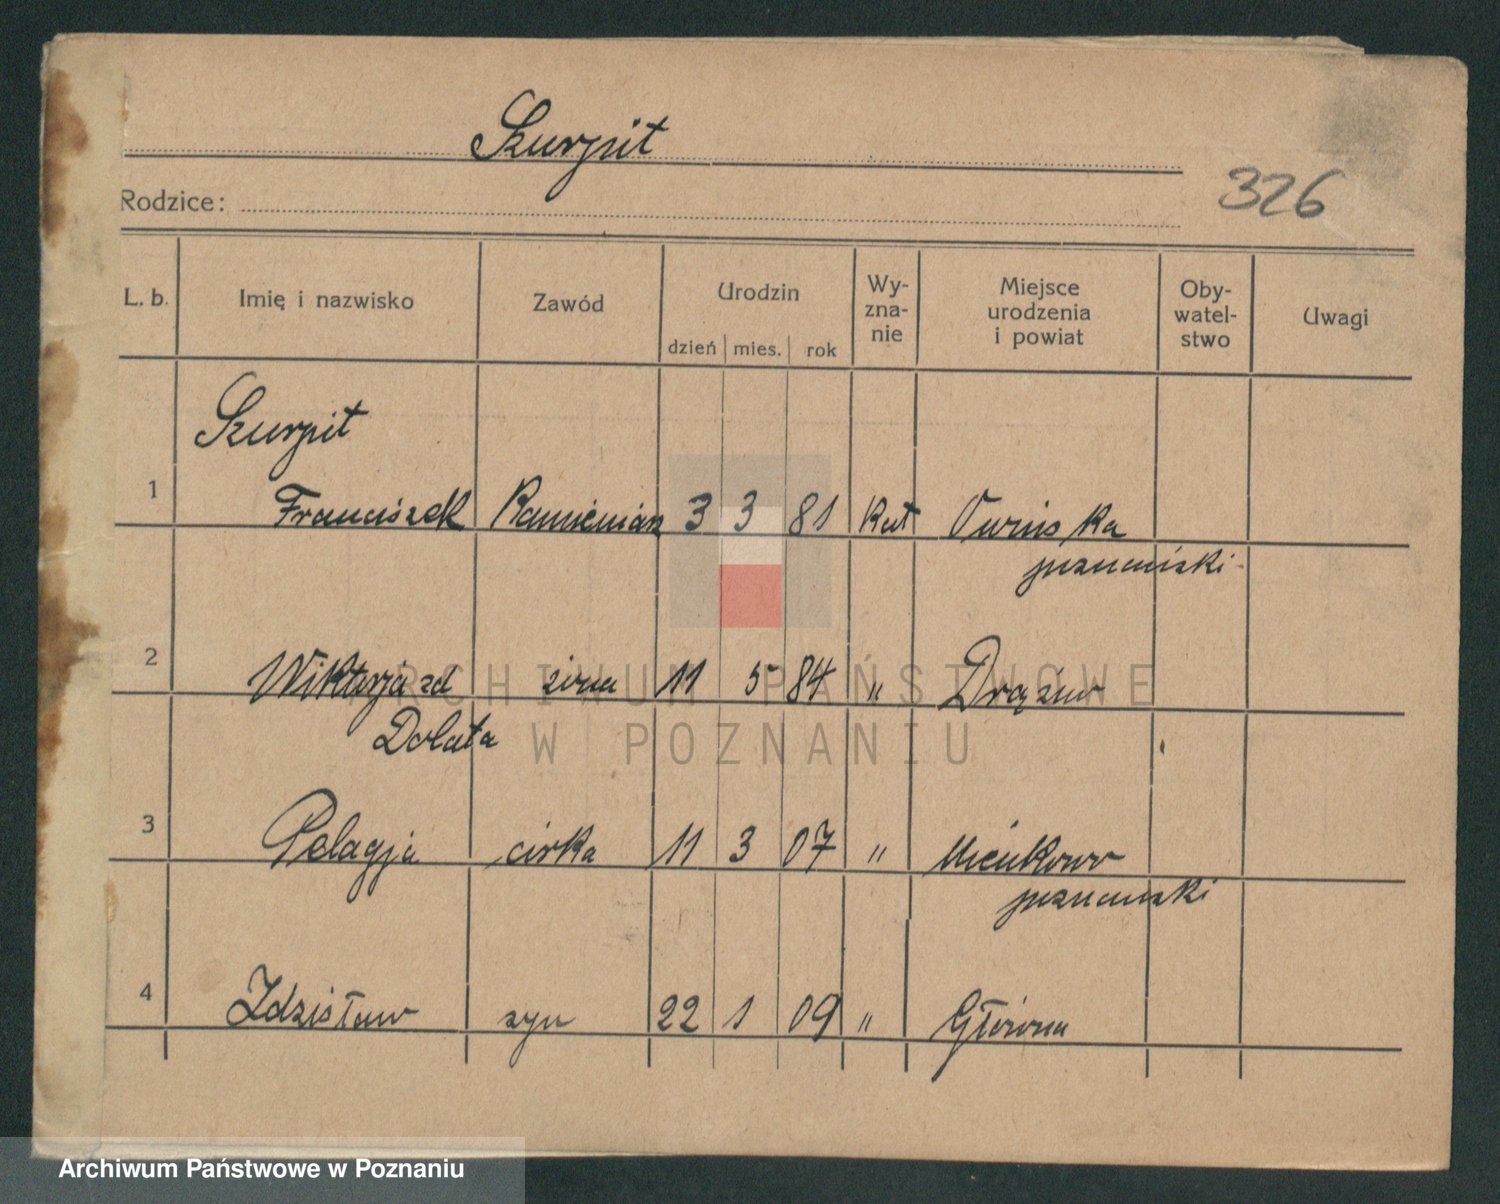 Szurpit
326
Rodzice:
L. b. Imię i nazwisko Zawód Urodzin dzień mies. rok Wy-zna-nie Miejsce urodzenia i powiat Oby-watel-stwo Uwagi
Szurpit
1 Franciszek Kamieniarz 3 3 81 kat
poznański
2 Wiktorja zd żona 11 5 84 "
Dolata
3 Pelagja córka 11 3 07 " Mieńkowo
poznański
4 Zdzisław syn 22 1 09 " Główna
ARCHIWUM PAŃSTWOWE
W POZNANIU
Archiwum Państwowe w Poznaniu